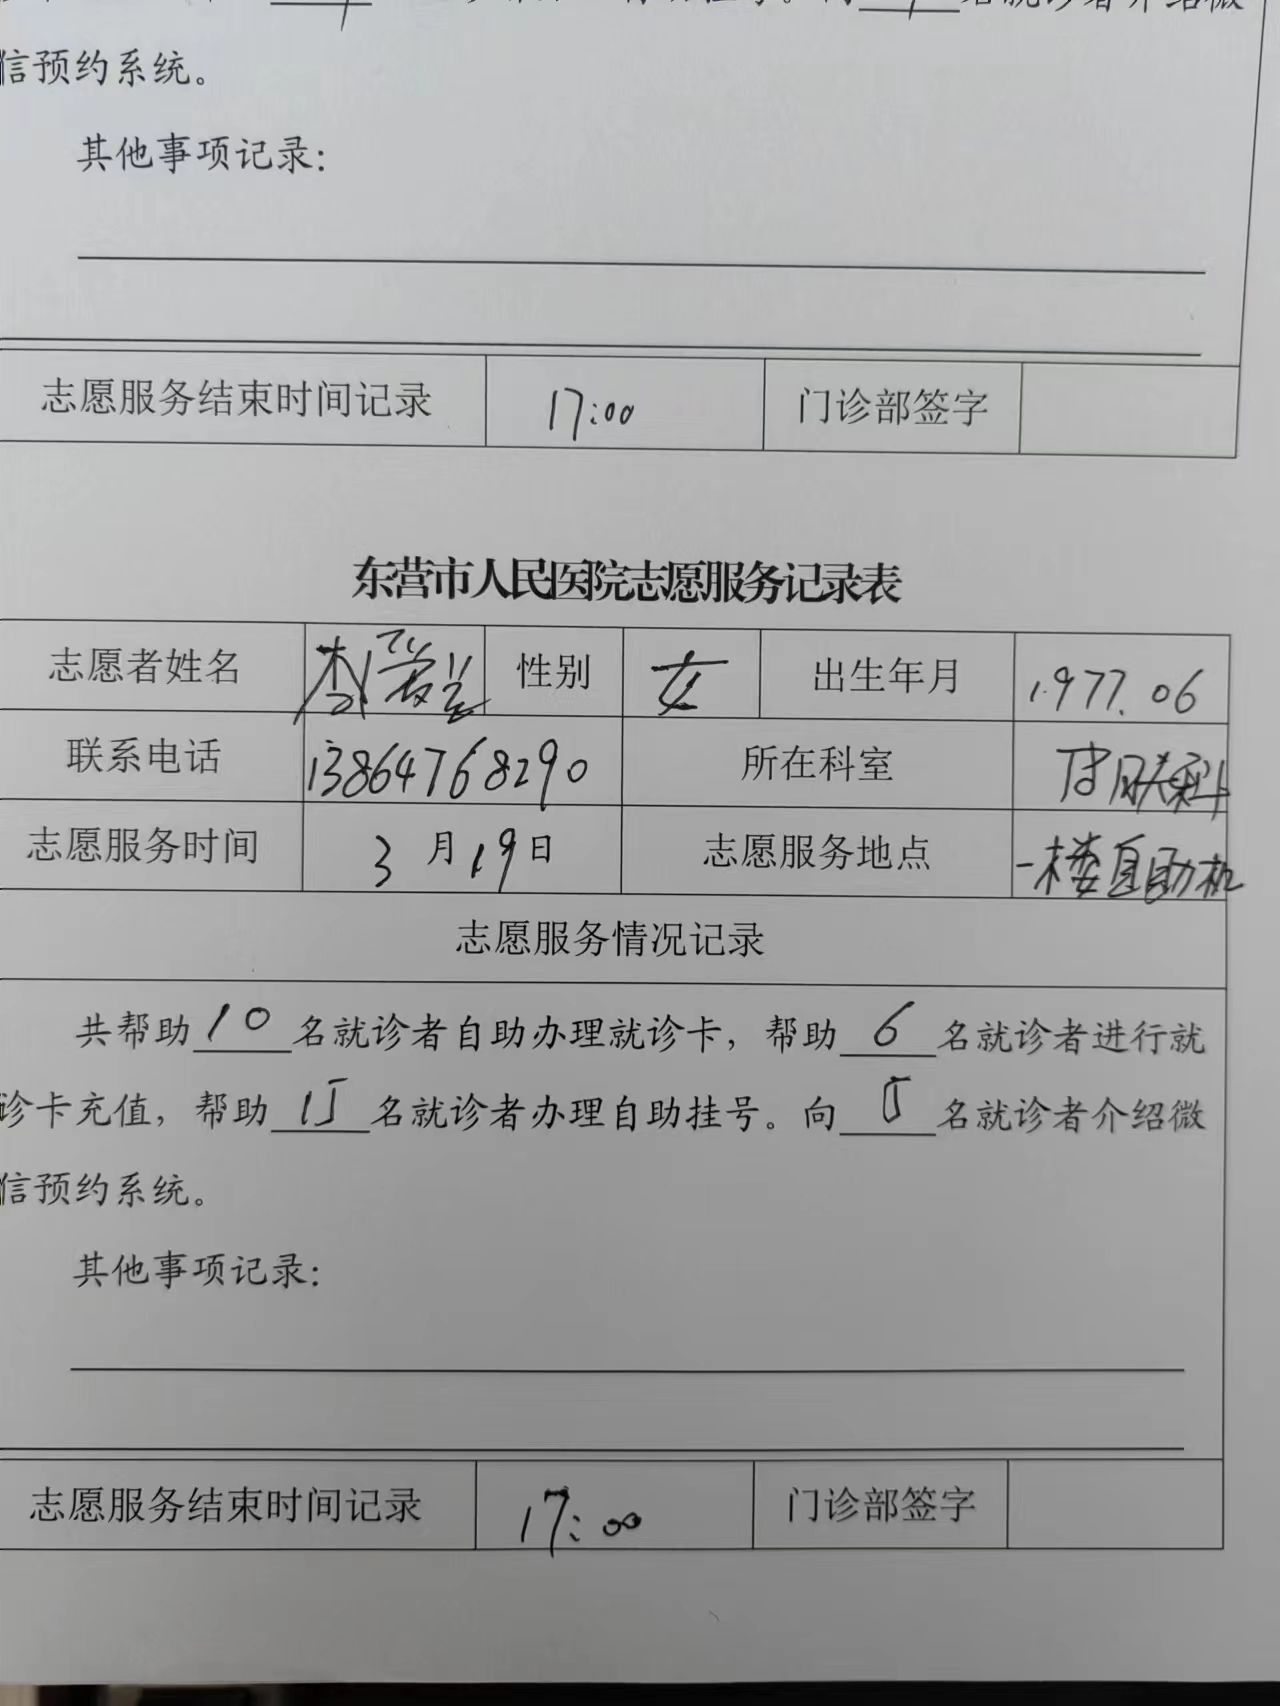 名就诊者介绍微
信预约系统。
其他事项记录：
志愿服务结束时间记录 17:00 门诊部签字
东营市人民医院志愿服务记录表
志愿者姓名 李爱兰 性别 女 出生年月 1977.06
联系电话 13864768290 所在科室 皮肤科
志愿服务时间 3月19日 志愿服务地点 一楼自助机
志愿服务情况记录
共帮助10名就诊者自助办理就诊卡，帮助6名就诊者进行就
诊卡充值，帮助15名就诊者办理自助挂号。向5名就诊者介绍微
信预约系统。
其他事项记录：
志愿服务结束时间记录 17:00 门诊部签字